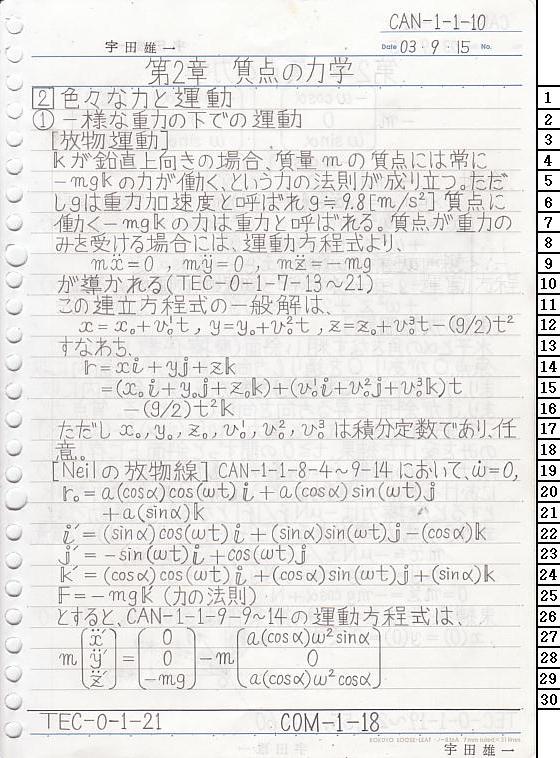 CAN-1-1-10
宇田雄一
Date 03・9・15 No.
第2章 質点の力学
2 色々な力と運動
① 一様な重力の下での運動
[放物運動]
𝕜が鉛直上向きの場合、質量mの質点には常に
-mg𝕜の力が働く、という力の法則が成り立つ。ただ
しgは重力加速度と呼ばれg≒9.8[m/s²] 質点に
働く-mg𝕜の力は重力と呼ばれる。質点が重力の
みを受ける場合には、運動方程式より、
mẍ=0 , mÿ=0 , mz̈=-mg
が導かれる(TEC-0-1-7-13～21)
この連立方程式の一般解は、
x=x₀+v₀¹t , y=y₀+v₀²t , z=z₀+v₀³t-(g/2)t²
すなわち、
𝕣=x𝕚+y𝕛+z𝕜
=(x₀𝕚+y₀𝕛+z₀𝕜)+(v₀¹𝕚+v₀²𝕛+v₀³𝕜)t
-(g/2)t²𝕜
ただし x₀, y₀, z₀, v₀¹, v₀², v₀³ は積分定数であり、任
意。
[Neilの放物線] CAN-1-1-8-4～9-14において、ẇ=0,
𝕣₀=a(cosα)cos(ωt)𝕚+a(cosα)sin(ωt)𝕛
+a(sinα)𝕜
𝕚′=(sinα)cos(ωt)𝕚+(sinα)sin(ωt)𝕛-(cosα)𝕜
𝕛′=-sin(ωt)𝕚+cos(ωt)𝕛
𝕜′=(cosα)cos(ωt)𝕚+(cosα)sin(ωt)𝕛+(sinα)𝕜
𝔽=-mg𝕜′ (力の法則)
とすると、CAN-1-1-9-9～14の運動方程式は、
m(ẍ′ ÿ′ z̈′)=(0 0 -mg)-m(a(cosα)ω²sinα 0 a(cosα)ω²cosα)
TEC-0-1-21 COM-1-18
KOKUYO LOOSE-LEAF ノ-836A 7mm ruled×31 lines
宇田雄一
1
2
3
4
5
6
7
8
9
10
11
12
13
14
15
16
17
18
19
20
21
22
23
24
25
26
27
28
29
30